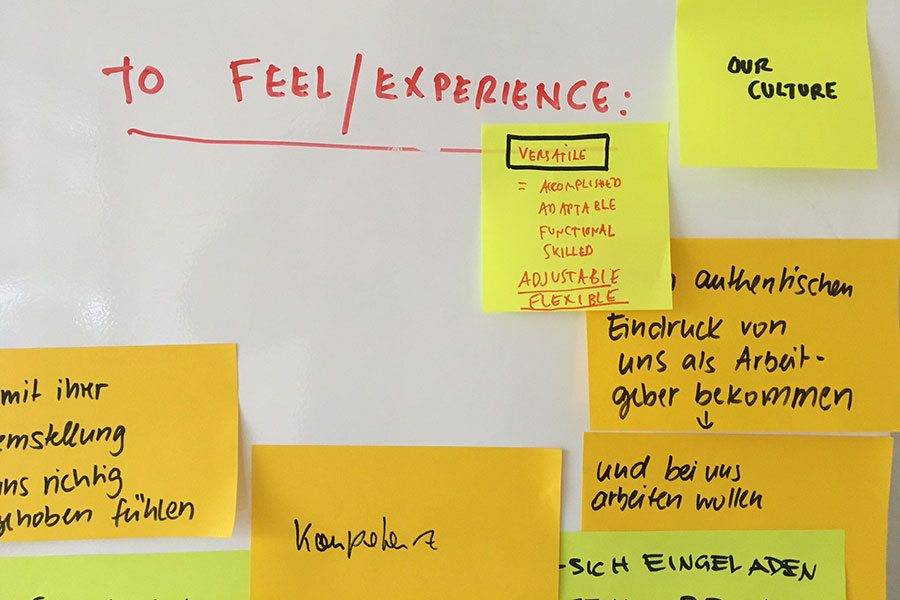 TO FEEL/EXPERIENCE:
OUR
CULTURE
VERSATILE
= ACCOMPLISHED
ADAPTABLE
FUNCTIONAL
SKILLED
ADJUSTABLE
FLEXIBLE
authentischen
Eindruck von
uns als Arbeit-
geber bekommen
↓
und bei uns
arbeiten wollen
mit ihrer
emstellung
uns richtig
gehoben fühlen
Kompetenz
-SICH EINGELADEN